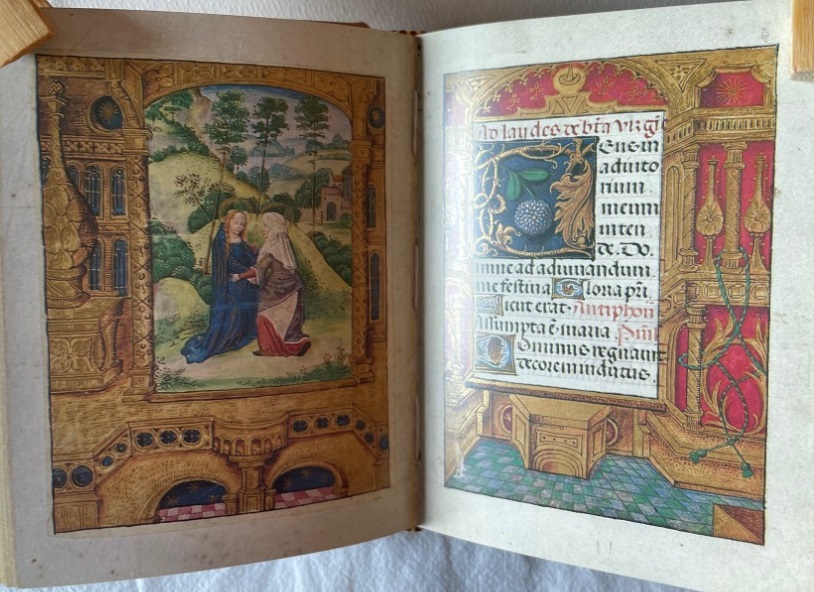 Ad laudes de bta virgi
Deus in
adiuto
rium
meum
inten
de. Do
mine ad adiuuandum
me festina Gloria pri
Sicut erat. Antiphon
Assumpta e maria ps
Dominus regnauit
decorem indutus.